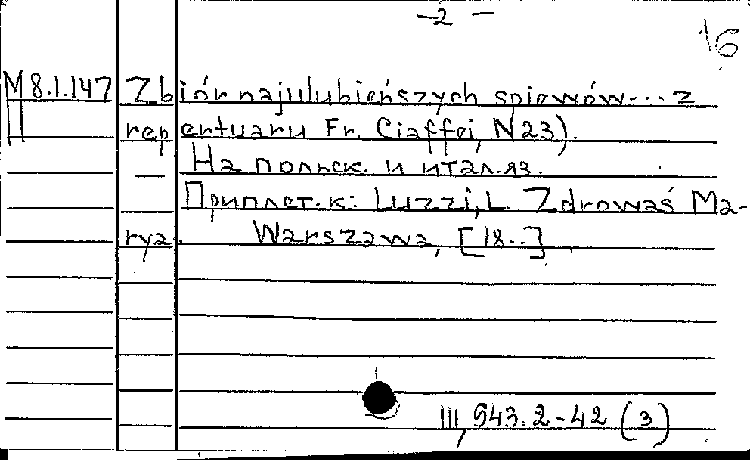 — 2 —
16
M 8.1.147 Zbiór najulubieńszych spiewów... z
repertuaru Fr. Ciaffei, N 23).
На польск. и итал. яз.
Приплет. к: Luzzi, L. Zdrowaś Ma-
rya. Warszawa, [18..]
III, 543.2-42 (3)